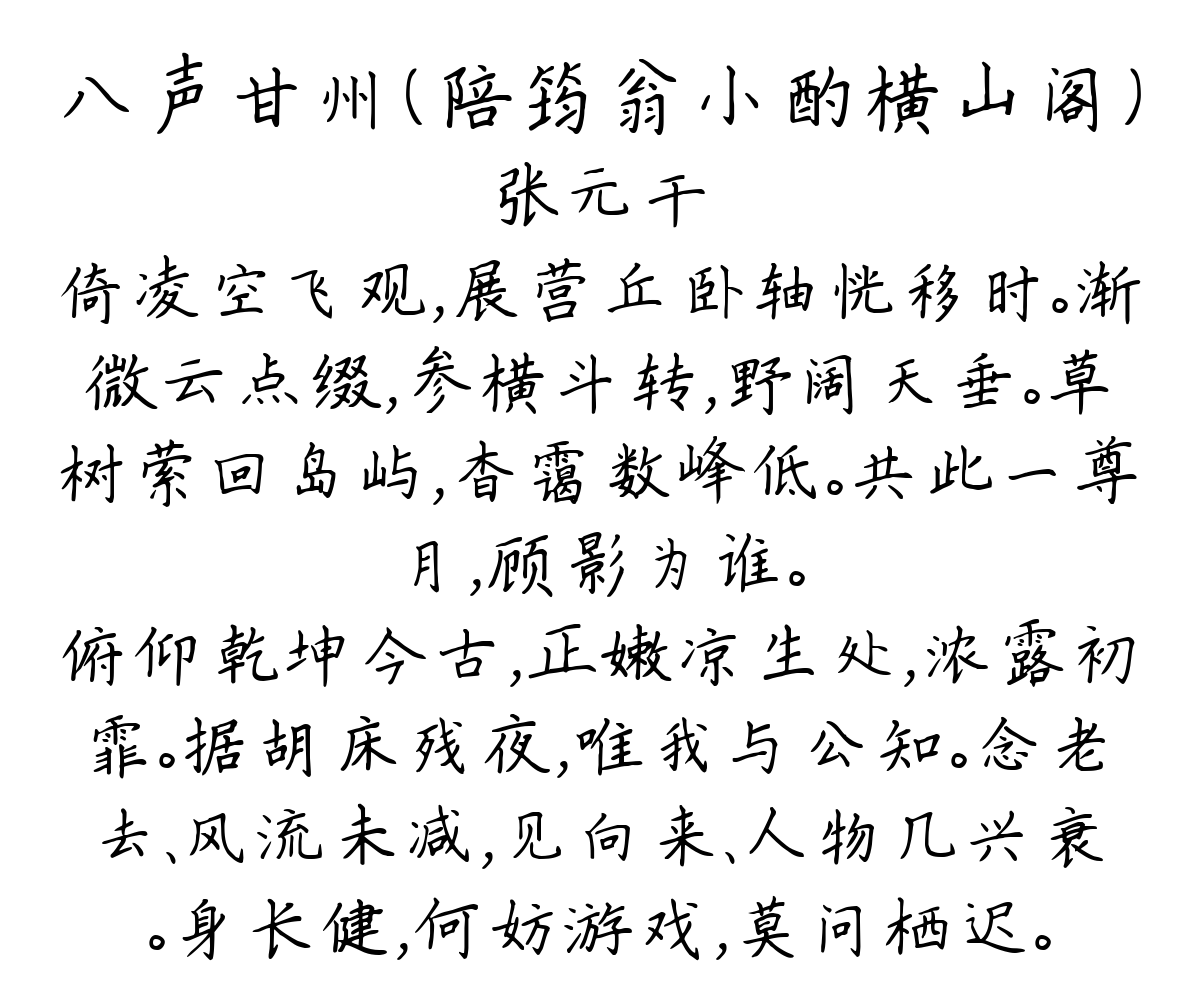 八声甘州(陪筠翁小酌横山阁)
张元干
倚凌空飞观,展营丘卧轴恍移时。渐
微云点缀,参横斗转,野阔天垂。草
树萦回岛屿,杳霭数峰低。共此一尊
月,顾影为谁。
俯仰乾坤今古,正嫩凉生处,浓露初
霏。据胡床残夜,唯我与公知。念老
去、风流未减,见向来、人物几兴衰
。身长健,何妨游戏,莫问栖迟。